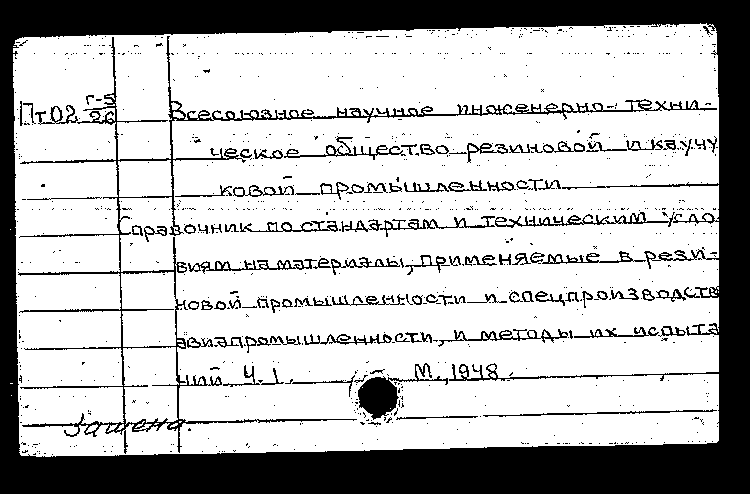 Пт02 Г-5/26 Всесоюзное научное инженерно-техни-
ческое общество резиновой и каучу
ковой промышленности
Справочник по стандартам и техническим усло
виям на материалы, применяемые в рези-
новой промышленности и спецпроизводств
авиапромышленности, и методы их испыта
ний Ч. I. М., 1948.